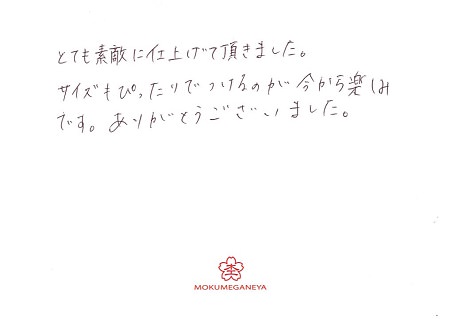 とても素敵に仕上げて頂きました。
サイズもぴったりでつけるのが今から楽しみ
です。ありがとうございました。
MOKUMEGANEYA